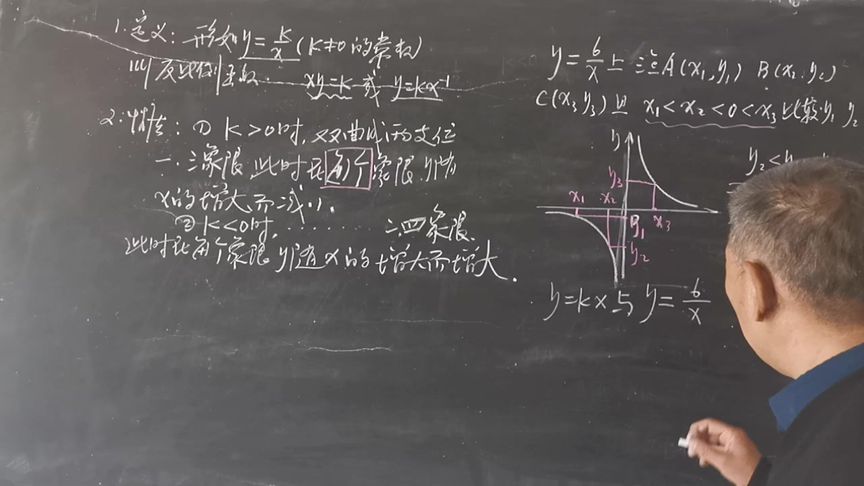 1.定义：形如y=k/x(k≠0的常数)
叫反比例函数. xy=k 或 y=kx⁻¹
2.性质：① k>0时，双曲线两支位
一.三象限 此时在每个象限 y随
x的增大而减小.
② k<0时，…… 二.四象限.
此时在每个象限 y随x的增大而增大.
y=6/x上 三点A(x₁,y₁) B(x₂.y₂)
C(x₃ y₃) 且 x₁<x₂<0<x₃ 比较y₁ y₂
y₂<y₁
y
y₃
x₁ x₂ x₃
y₁
y₂
y=kx与 y=6/x